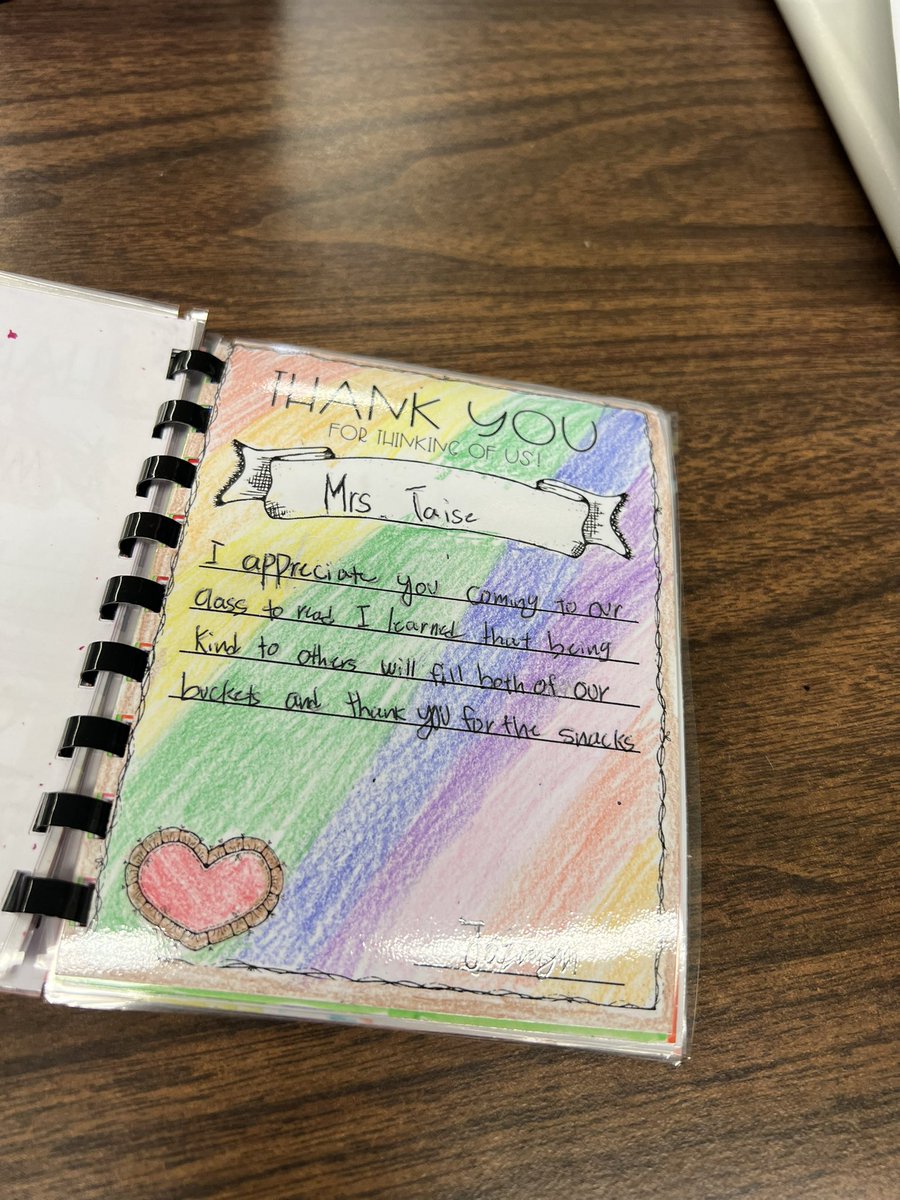 THANK YOU
FOR THINKING OF US!
Mrs. Taise
I appreciate you coming to our
class to read I learned that being
kind to others will fill both of our
buckets and thank you for the snacks